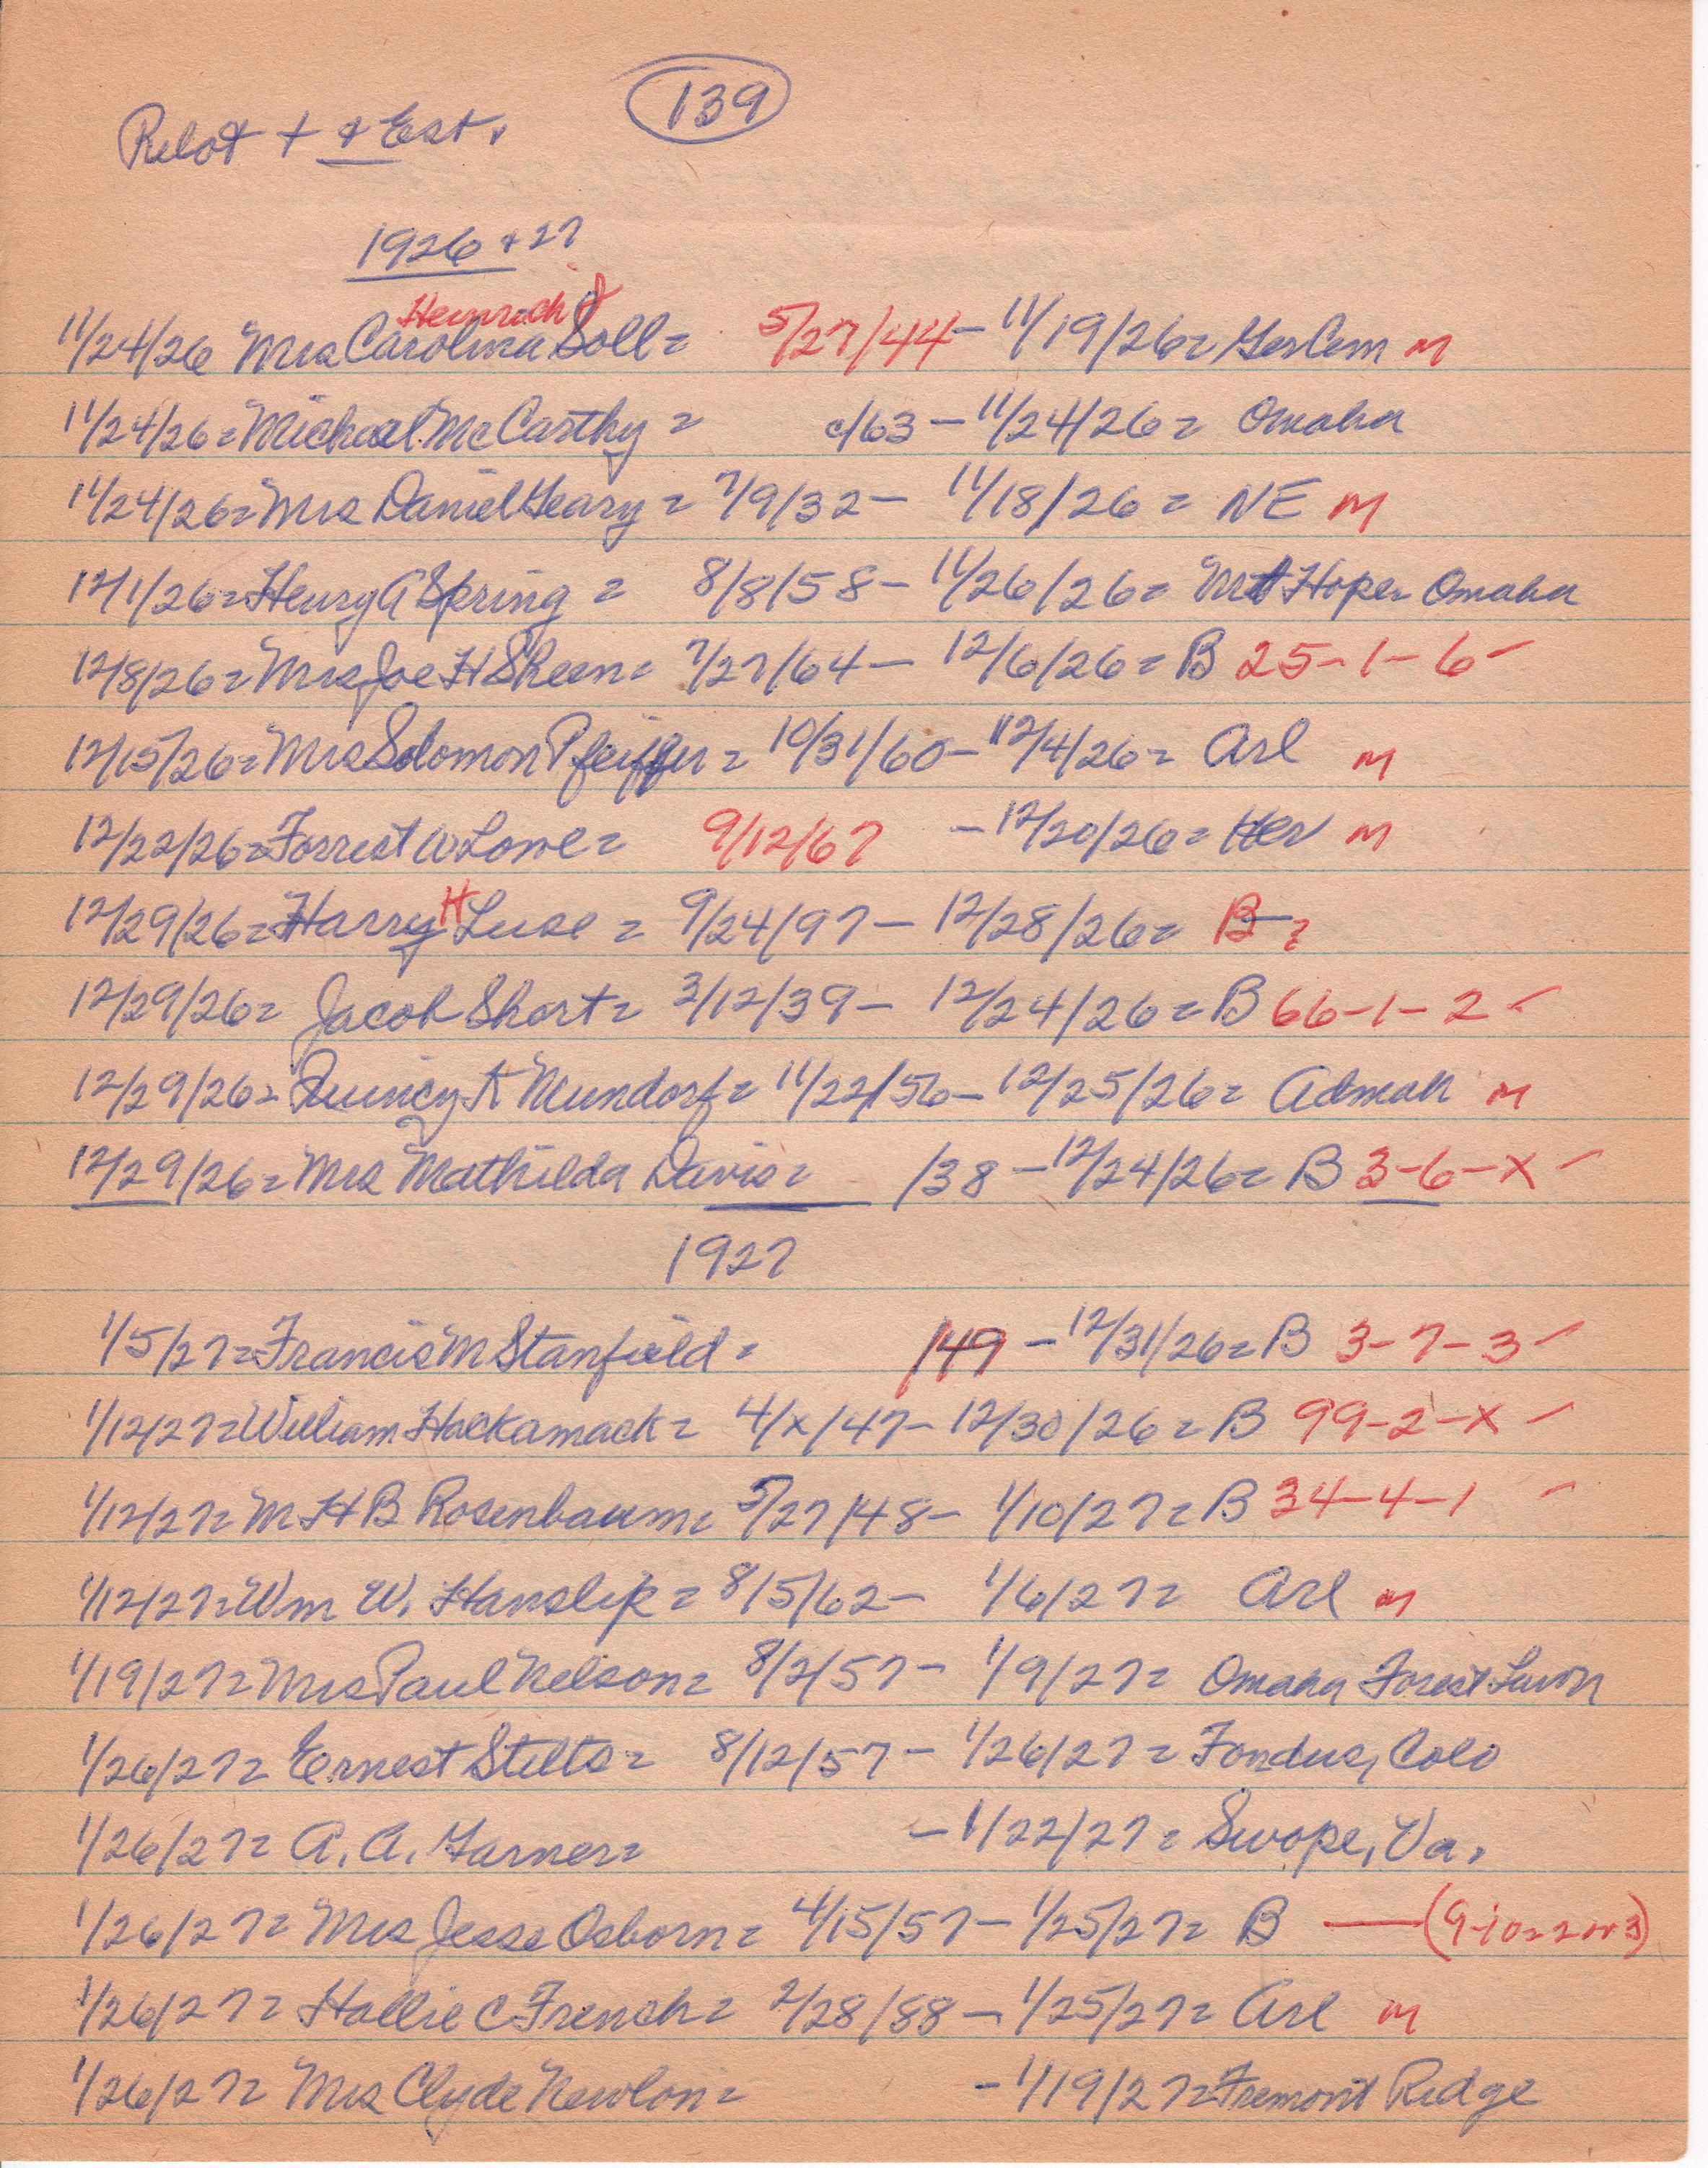 139
Pilot + & Ent.
1926 & 27
Heinrich J
11/24/26 Mrs Carolina Soll = 5/27/44 - 11/19/26 = Ger Cem M
11/24/26 = Michael McCarthy = c/63 - 11/24/26 = Omaha
11/24/26 = Mrs Daniel Geary = 7/9/32 - 11/18/26 = NE M
12/1/26 = Henry A Spring = 8/8/58 - 11/26/26 = Mt Hope - Omaha
12/8/26 = Mrs Joe H Sheen = 7/27/64 - 12/6/26 = B 25-1-6 -
12/15/26 = Mrs Solomon Pfeiffer = 10/31/60 - 12/4/26 = Arl M
12/22/26 = Forrest W Lowe = 9/12/67 - 12/20/26 = Her M
12/29/26 = Harry H Luse = 9/24/97 - 12/28/26 = B - ?
12/29/26 = Jacob Short = 3/12/39 - 12/24/26 = B 66-1-2 -
12/29/26 = Quincy A Mundorf = 11/22/56 - 12/25/26 = Admah M
12/29/26 = Mrs Mathilda Davis = /38 - 12/24/26 = B 3-6-X -
1927
1/5/27 = Francis M Stanfield = /49 - 12/31/26 = B 3-7-3 -
1/12/27 = William Hackamack = 4/x/47 - 12/30/26 = B 99-2-X -
1/12/27 = M H B Rosenbaum = 5/27/48 - 1/10/27 = B 34-4-1 -
1/12/27 = Wm W. Hanslip = 8/5/62 - 1/6/27 = Arl M
1/19/27 = Mrs Paul Nelson = 8/2/57 - 1/9/27 = Omaha Forest Lawn
1/26/27 = Ernest Stilts = 8/12/57 - 1/26/27 = Fondus, Colo
1/26/27 = A. A. Garner = - 1/22/27 = Swope, Va.
1/26/27 = Mrs Jesse Osborn = 4/15/57 - 1/25/27 = B — (9-10=2 or 3)
1/26/27 = Hollie C French = 2/28/88 - 1/25/27 = Arl M
1/26/27 = Mrs Clyde Newlon = - 1/19/27 = Fremont Ridge